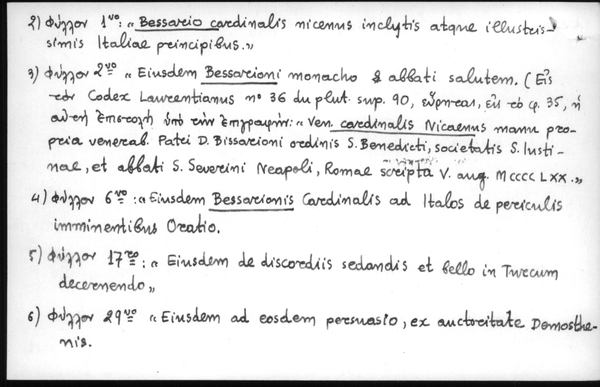 2) Φύλλον 1ᵛᵒ: « Bessareio cardinalis nicenus inclytis atque illustris-
simis Italiae principibus.»
3) Φύλλον 2ᵛᵒ « Eiusdem Bessarioni monacho & abbati salutem. (Εἰς
τὸν Codex Laurentianus nº 36 du plut. sup. 90, εὕρηται, εἰς τὸ φ. 35, ἡ
αὐτὴ ἐπιστολὴ ὑπὸ τὴν ἐπιγραφήν: « Ven. cardinalis Nicaenus manu pro-
pria venerab. Patri D. Bissarioni ordinis S. Benedicti, societatis S. Iusti-
nae, et abbati S. Severini Neapoli, Romae scripta V. aug. MCCCCLXX.»
4) Φύλλον 6ᵛᵒ: « Eiusdem Bessarionis Cardinalis ad Italos de periculis
imminentibus Oratio.
5) Φύλλον 17ʳᵒ: « Eiusdem de discordiis sedandis et bello in Turcum
decernendo»
6) Φύλλον 29ᵛᵒ « Eiusdem ad eosdem persuasio, ex auctoritate Demosthe-
nis.